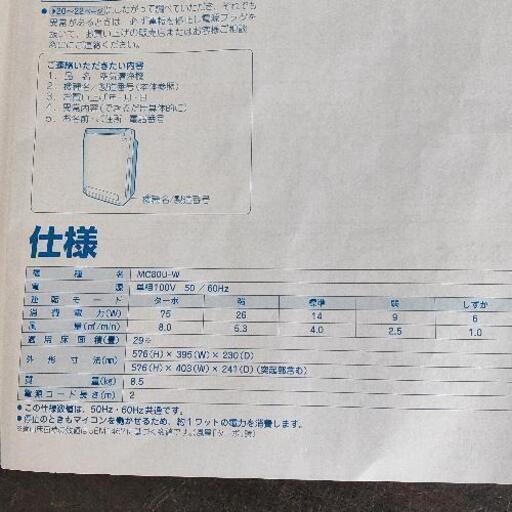 ●▶20～22ページにしたがって調べていただき、それでも
異常があるときは 必ず運転を停止し電源プラグを
抜いて、お買い上げの販売店またはお客様ご相談
窓口にご連絡ください。
ご連絡いただきたい内容
1. 品 名 空気清浄機
2. 機種名/製造番号(本体参照)
3. お買い上げ年・月・日
4. 異常内容(できるだけ具体的に)
5. お名前・ご住所・電話番号
機種名/製造番号
仕様
機 種 名 MC80U-W
電 源 単相100V 50 / 60Hz
運転モード ターボ 強 標準 弱 しずか
消費電力(W) 75 26 14 9 6
風 量(㎥/min) 8.0 5.3 4.0 2.5 1.0
適用床面積(畳) 29※
外形寸法(㎜) 576(H)×395(W)×230(D)
576(H)×403(W)×241(D)(突起部含む)
質 量(kg) 8.5
電源コード長さ(m) 2
●この仕様数値は、50Hz・60Hz共通です。
●停止のときもマイコンを働かせるため、約1ワットの電力を消費します。